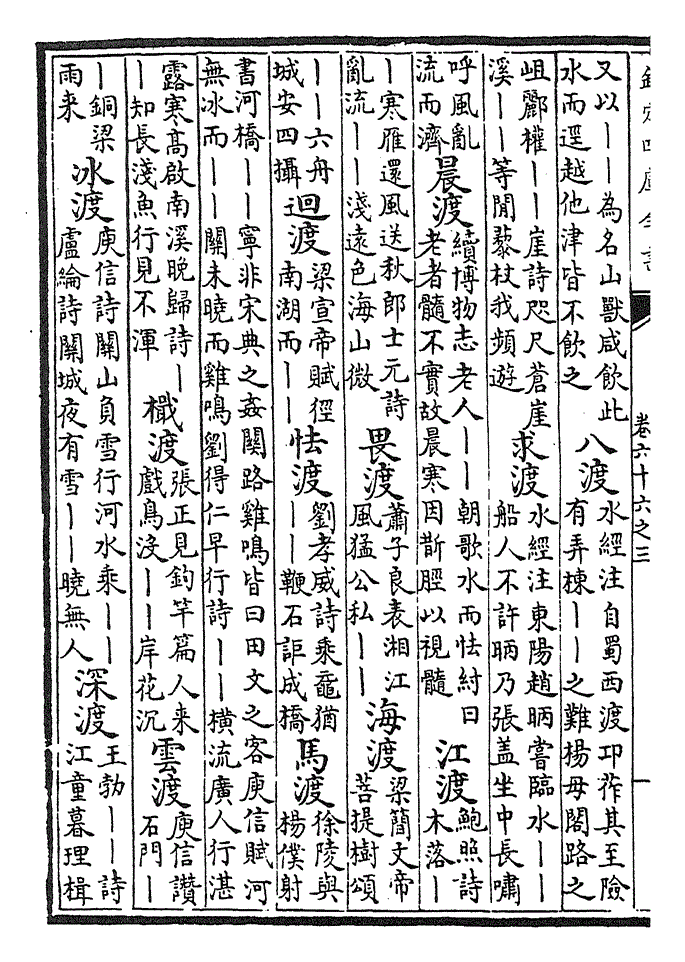 欽定四庫全書 卷六十六之三
又以丨丨為名山獸咸飲此
水而逕越他津皆不飲之
八渡
水經注自蜀西渡卭莋其至險
有弄棟丨丨之難楊母閣路之
岨酈權丨丨崖詩咫尺蒼崖
溪丨丨等閒藜杖我頻遊
求渡
水經注東陽趙昞嘗臨水丨丨
船人不許昞乃張盖坐中長嘯
呼風亂
流而濟
晨渡
續博物志老人丨丨朝歌水而怯紂曰
老者髓不實故晨寒因斮脛以視髓
江渡
鮑照詩
木落丨
丨寒雁還風送秋郎士元詩
亂流丨丨淺遠色海山微
畏渡
蕭子良表湘江
風猛公私丨丨
海渡
梁簡文帝
菩提樹頌
丨丨六舟
城安四攝
迴渡
梁宣帝賦徑
南湖而丨丨
怯渡
劉孝威詩乘黿猶
丨丨鞭石詎成橋
馬渡
徐陵與
楊僕射
書河橋丨丨寧非宋典之姦關路雞鳴皆曰田文之客庾信賦河
無冰而丨丨關未曉而雞鳴劉得仁早行詩丨丨橫流廣人行湛
露寒高啟南溪晚歸詩丨
丨知長淺魚行見不渾
檝渡
張正見釣竿篇人来
戲鳥没丨丨岸花沉
雲渡
庾信讚
石門丨
丨銅梁
雨来
冰渡
庾信詩關山負雪行河水乘丨丨
盧綸詩關城夜有雪丨丨曉無人
深渡
王勃丨丨詩
江童暮理楫